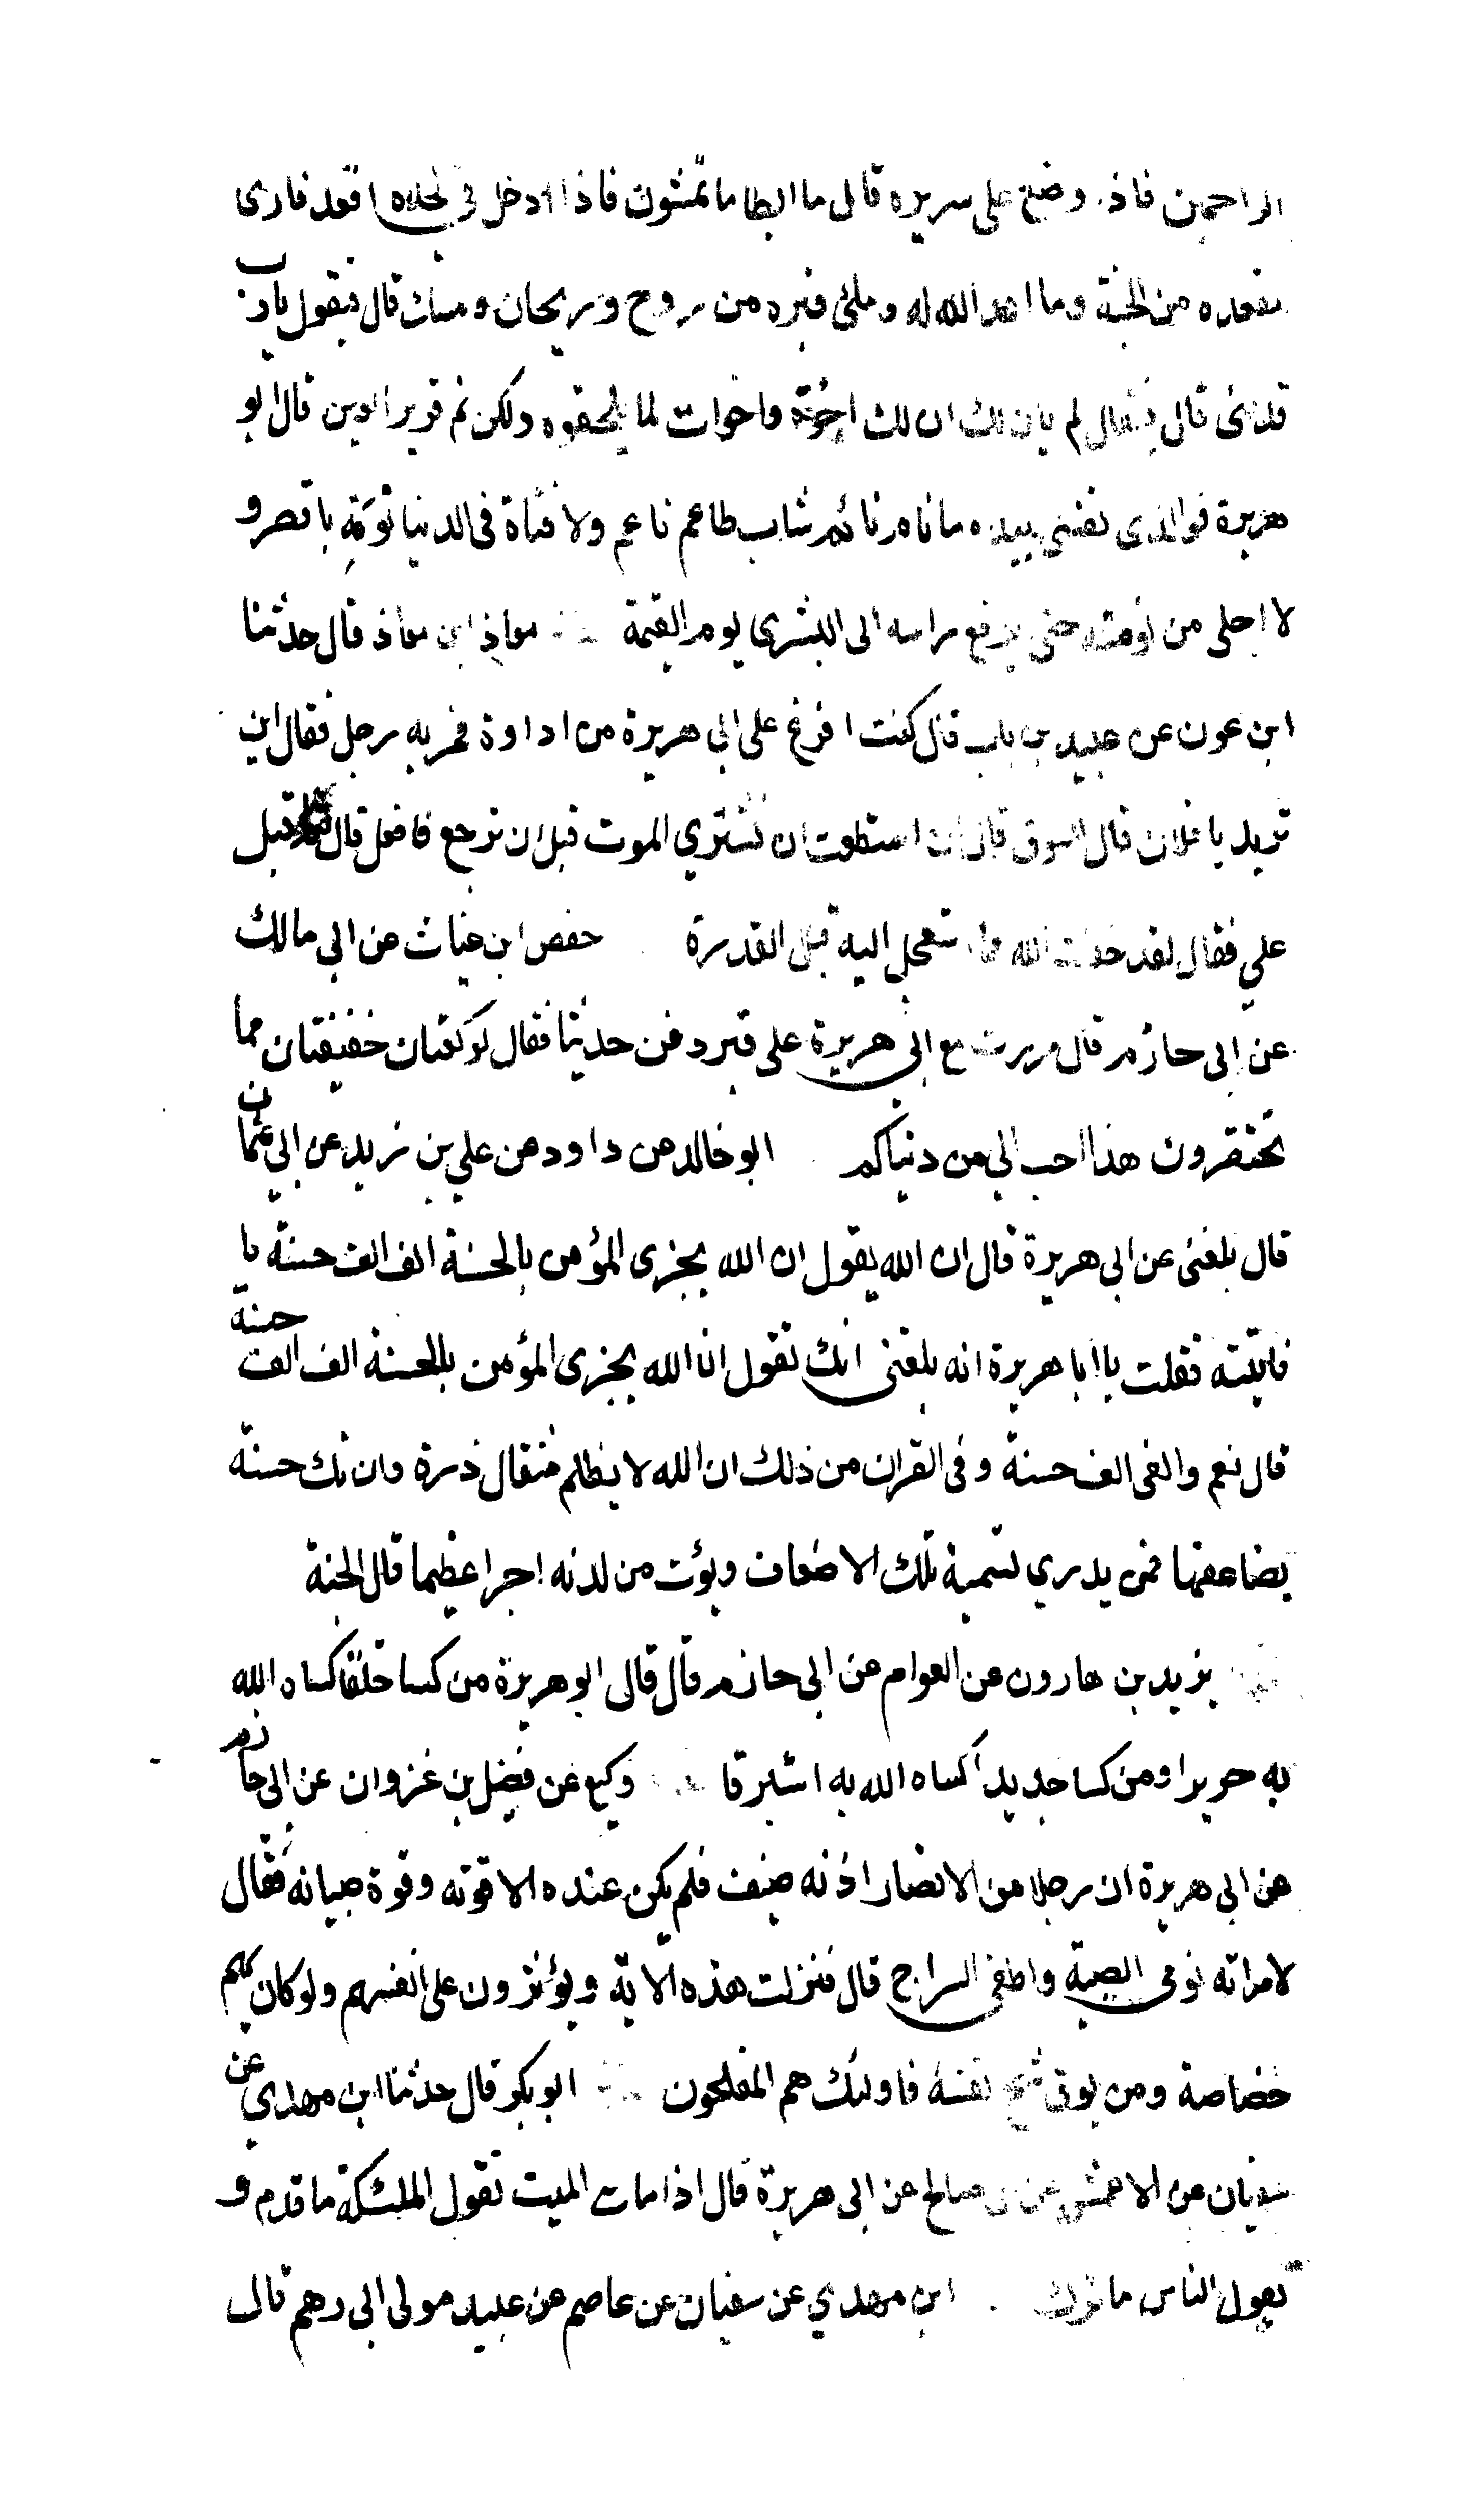 الراحمين فاذا وضع على سريره قال ما ابطا ما تمشون فاذا ادخل في لحده اقعد فارى
مقعده من الجنة وما اعد الله له وملئ قبره من روح وريحان ومسك قال فيقول يا رب
قدمنى قال فيقال لم يان لك ان لك اخوة واخوات لما يلحقوه ولكن نم قرير العين قال ابو
هريرة فوالذى نفسي بيده ما نام نائم شاب طاعم ناعم ولا فتاة فى الدنيا نومة باقصر و
لا احلى من نومته حتى يرفع راسه الى البشرى يوم القيمة معاذ ابن معاذ قال حدثنا
ابن عون عن عبيد بن باب قال كنت افرغ على ابي هريرة من اداوة فمر به رجل فقال اين
تريد يا فلان قال السوق قال ان استطعت ان تشتري الموت قبل ان ترجع فافعل قال ثم اقبل
علي فقال لقد خفت الله مما استعجل اليه قبل القدرة حفص ابن غياث عن ابى مالك
عن ابى حازم قال مررت مع ابى هريرة على قبر دفن حديثا فقال لركعتان خفيفتان مما
تحتقرون هذا احب الي من دنياكم ابو خالد عن داود عن علي بن زيد عن ابي عثمان
قال بلغنى عن ابى هريرة قال ان الله يقول ان الله يجزى المؤمن بالحسنة الف الف حسنة يا
فاتيته فقلت يا ابا هريرة انه بلغنى انك تقول ان الله يجزى المؤمن بالحسنة الف الف حسنة
قال نعم والفى الف حسنة وفى القران من ذلك ان الله لا يظلم مثقال ذرة وان تك حسنة
يضاعفها فمن يدري تسمية تلك الاضعاف ويؤت من لدنه اجرا عظيما قال الجنة
يزيد بن هارون عن العوام عن ابى حازم قال قال ابو هريرة من كسا خلقا كساه الله
به حريرا ومن كسا جديدا كساه الله به استبرقا وكيع عن فضيل بن غزوان عن ابى حازم
عن ابى هريرة ان رجلا من الانصار اذنه ضيف فلم يكن عنده الا قوته وقوة صبيانه فقال
لامراته نومى الصبية واطفى السراج قال فنزلت هذه الاية ويؤثرون على انفسهم ولو كان بهم
خصاصة ومن يوق شح نفسه فاولئك هم المفلحون ابو بكر قال حدثنا ابن مهدي عن
سفيان عن الاعمش عن ابى صالح عن ابى هريرة قال اذا مات الميت تقول الملئكة ما قدم و
تقول الناس ما ترك ابن مهدي عن سفيان عن عاصم عن عبيد مولى ابى رهم قال